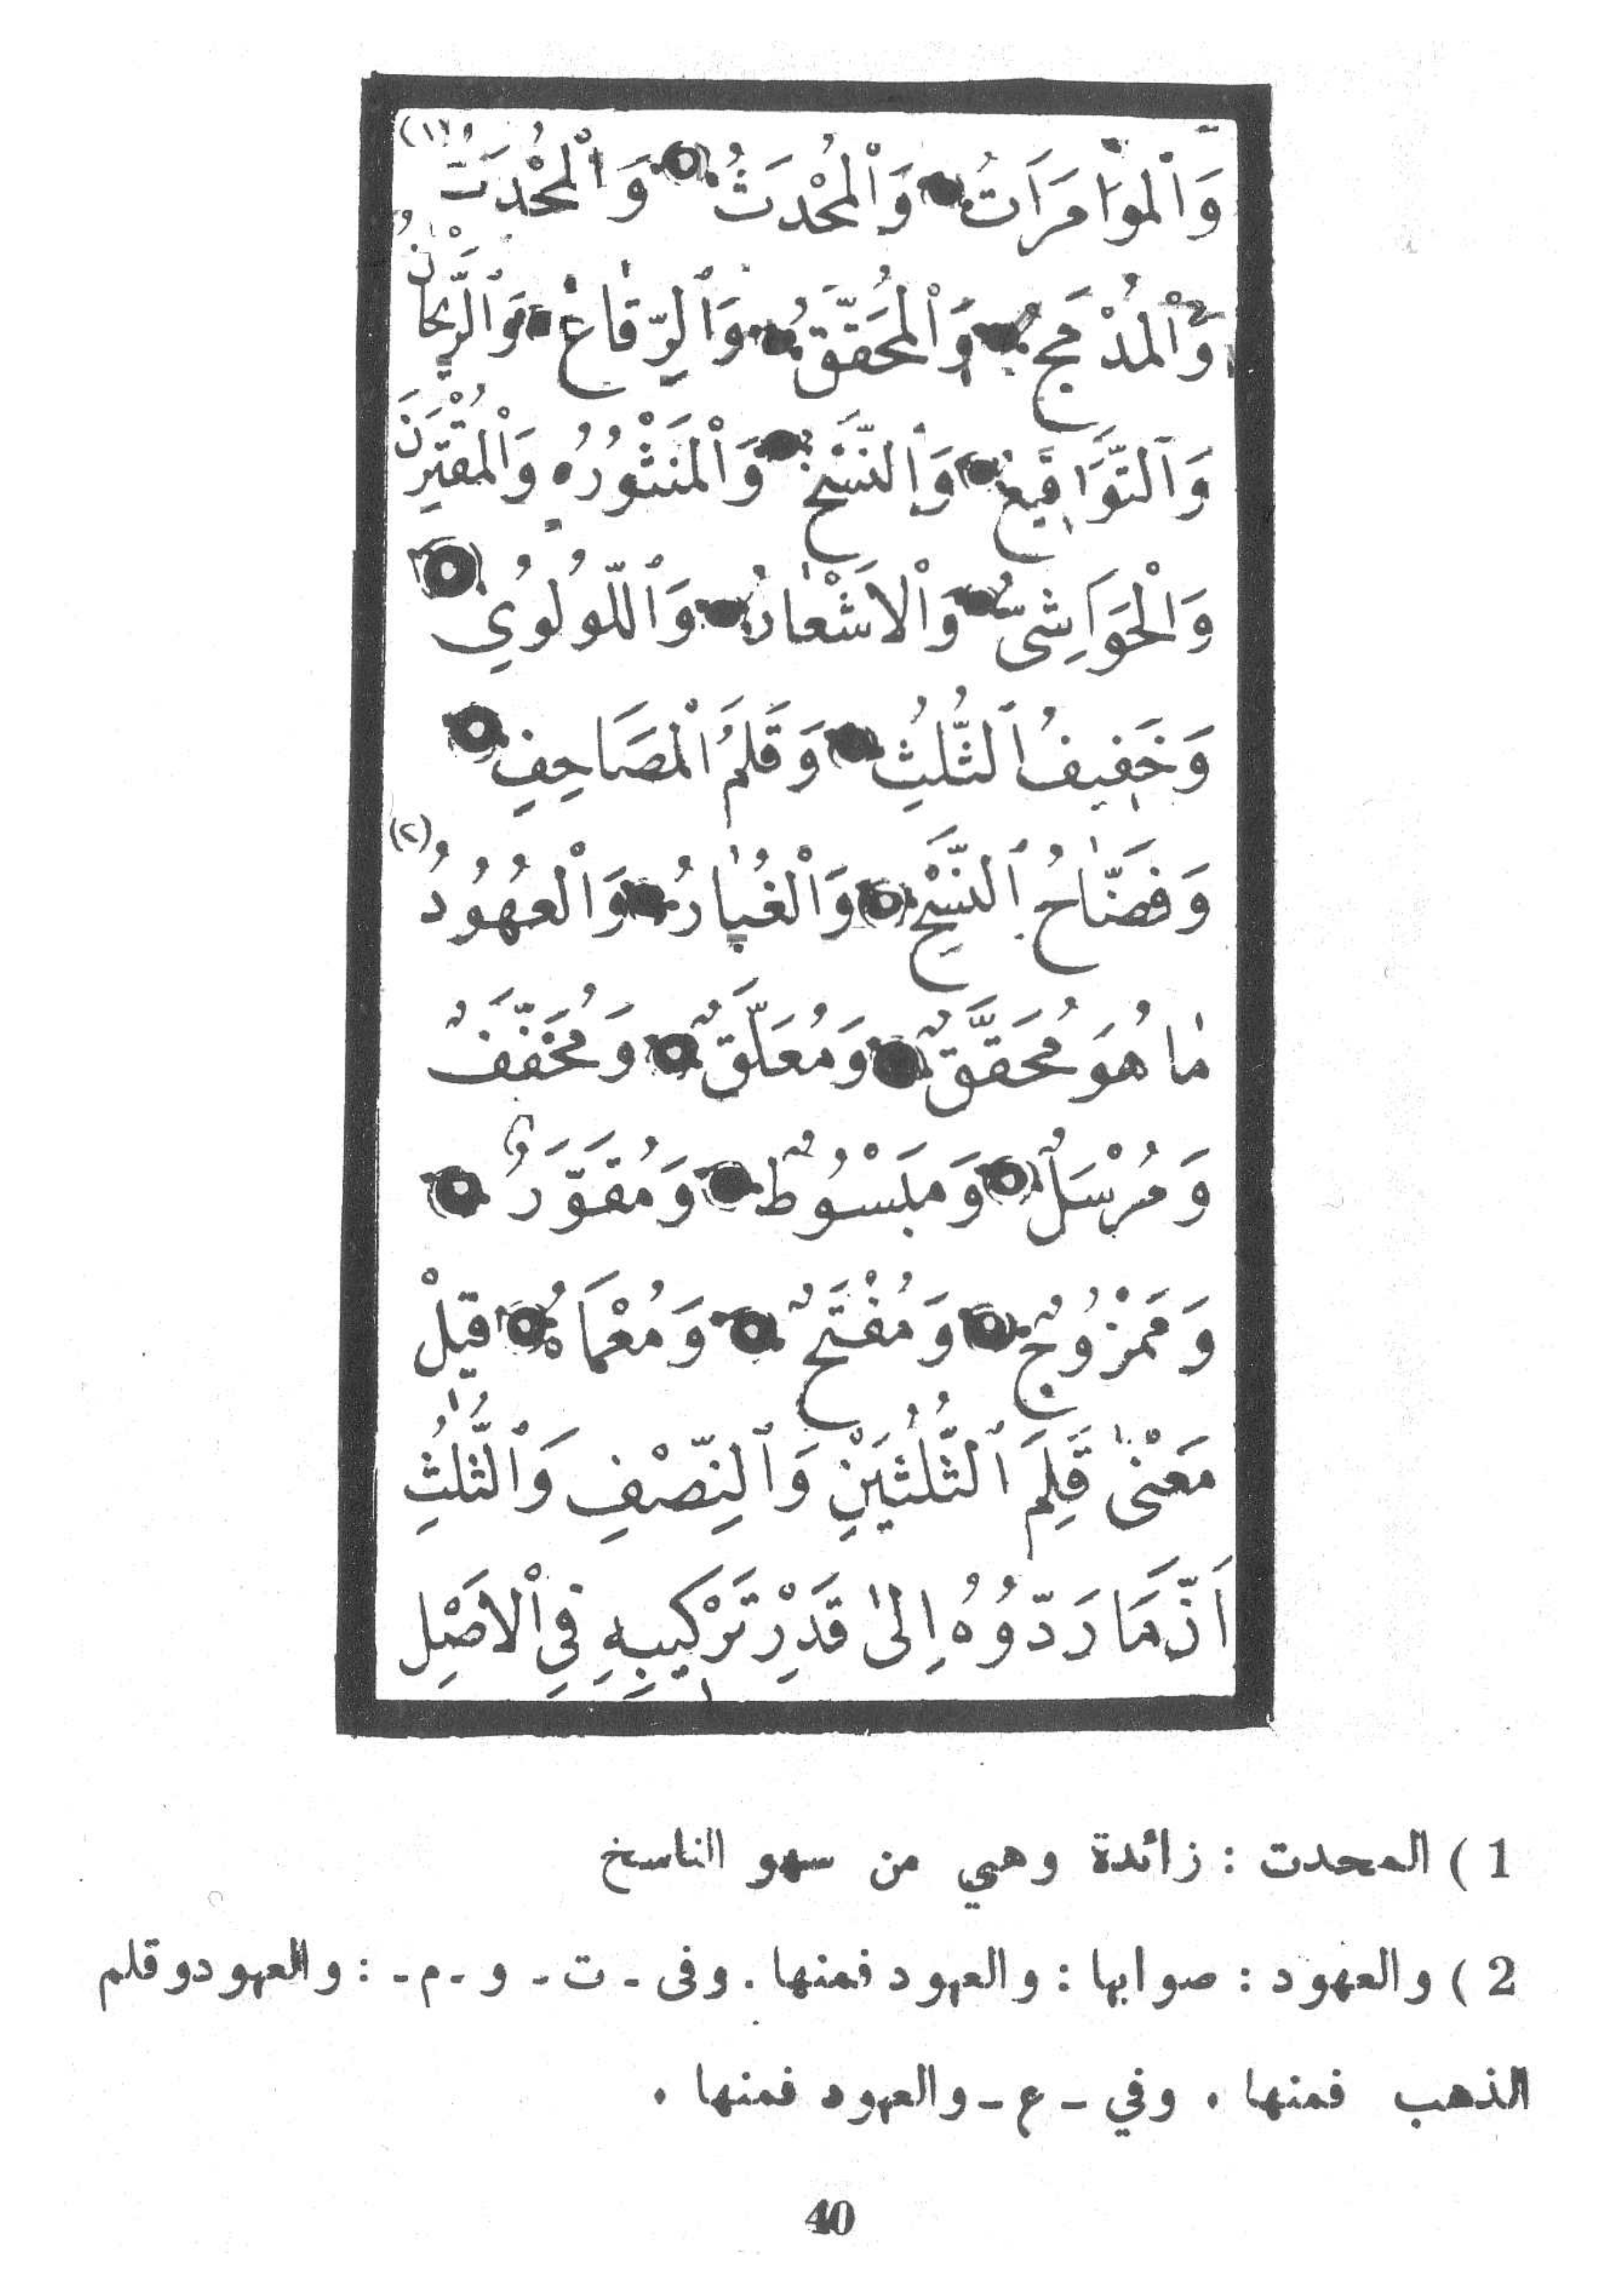 وَٱلْمُوَامَرَاتُ وَٱلْمُحْدَثُ وَٱلْمُحْدَتُ (١)
وَٱلْمُدْمَجُ وَٱلْمُحَقَّقُ وَٱلرِّقَاعُ وَٱلرَّيْحَانُ
وَٱلتَّوَاقِيعُ وَٱلنَّسْخُ وَٱلْمَنْثُورُ وَٱلْمُقْتَرِنُ
وَٱلْحَوَاشِىُّ وَٱلْاَشْعَارُ وَٱللُّولُوِي
وَخَفِيفُ ٱلثُّلُثِ وَقَلَمُ ٱلْمَصَاحِفِ
وَفَضَّاحُ ٱلنَّسْخِ وَٱلْغُبَارُ وَٱلْعُهُودُ (٢)
مَا هُوَ مُحَقَّقٌ وَمُعَلَّقٌ وَمُخَفَّفٌ
وَمُرْسَلٌ وَمَبْسُوطٌ وَمُقَوَّرٌ
وَمَمْزُوجٌ وَمُفَتَّحٌ وَمُعْمَاةُ قِيلْ
مَعْنٰى قَلَمِ ٱلثُّلُثَيْنِ وَٱلنِّصْفِ وَٱلثُّلُثِ
اَنَّمَا رَدُّوهُ اِلٰى قَدْرِ تَرْكِيبِهِ فِي ٱلْاَصْلِ
1 ) المحدت : زائدة وهي من سهو الناسخ
2 ) والعهود : صوابها : والعهود فمنها . وفى ـ ت ـ و ـ م ـ : والعهود وقلم
الذهب فمنها . وفي ـ ع ـ والعهود فمنها .
40